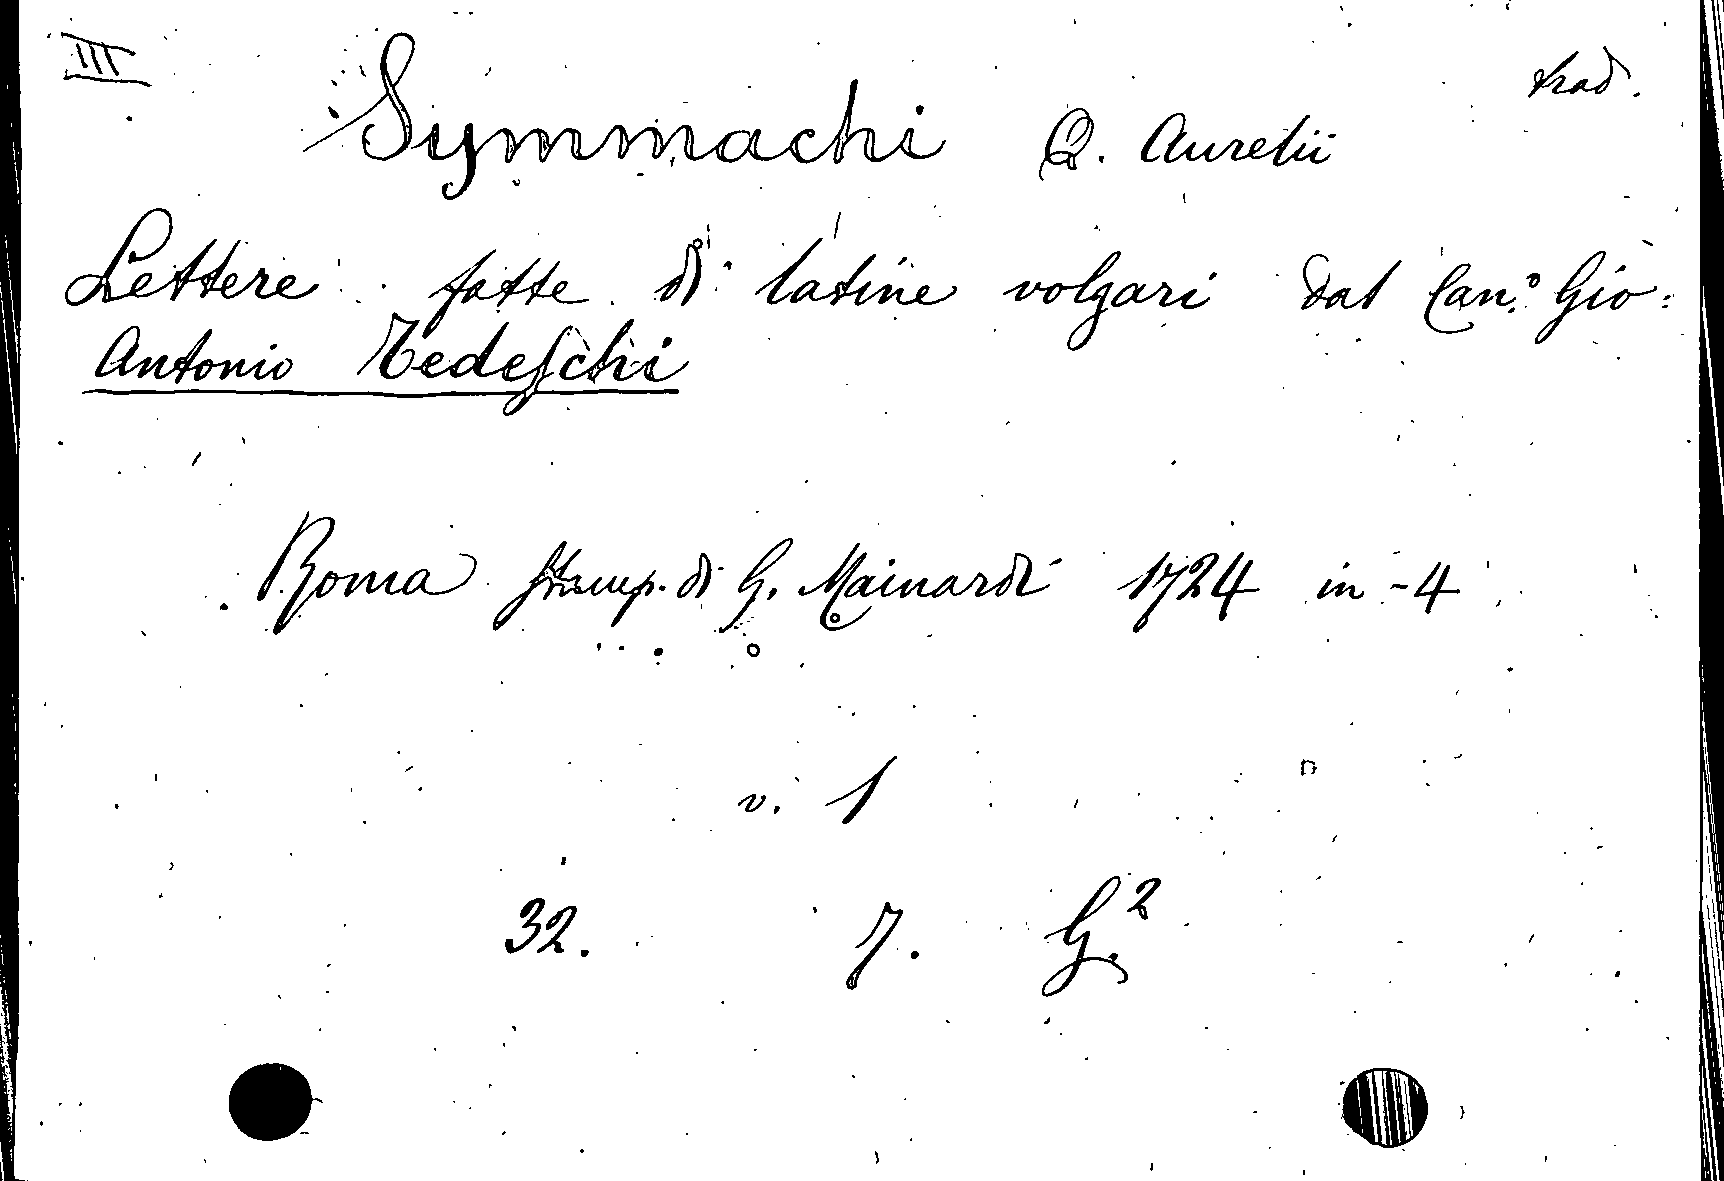 III
trad.
Symmachi Q. Aurelii
Lettere fatte di latine volgari dal Can.° Gio=
Antonio Tedeschi
Roma Stamp. di G. Mainardi 1724 in-4
v. 1
32. 7. G.²